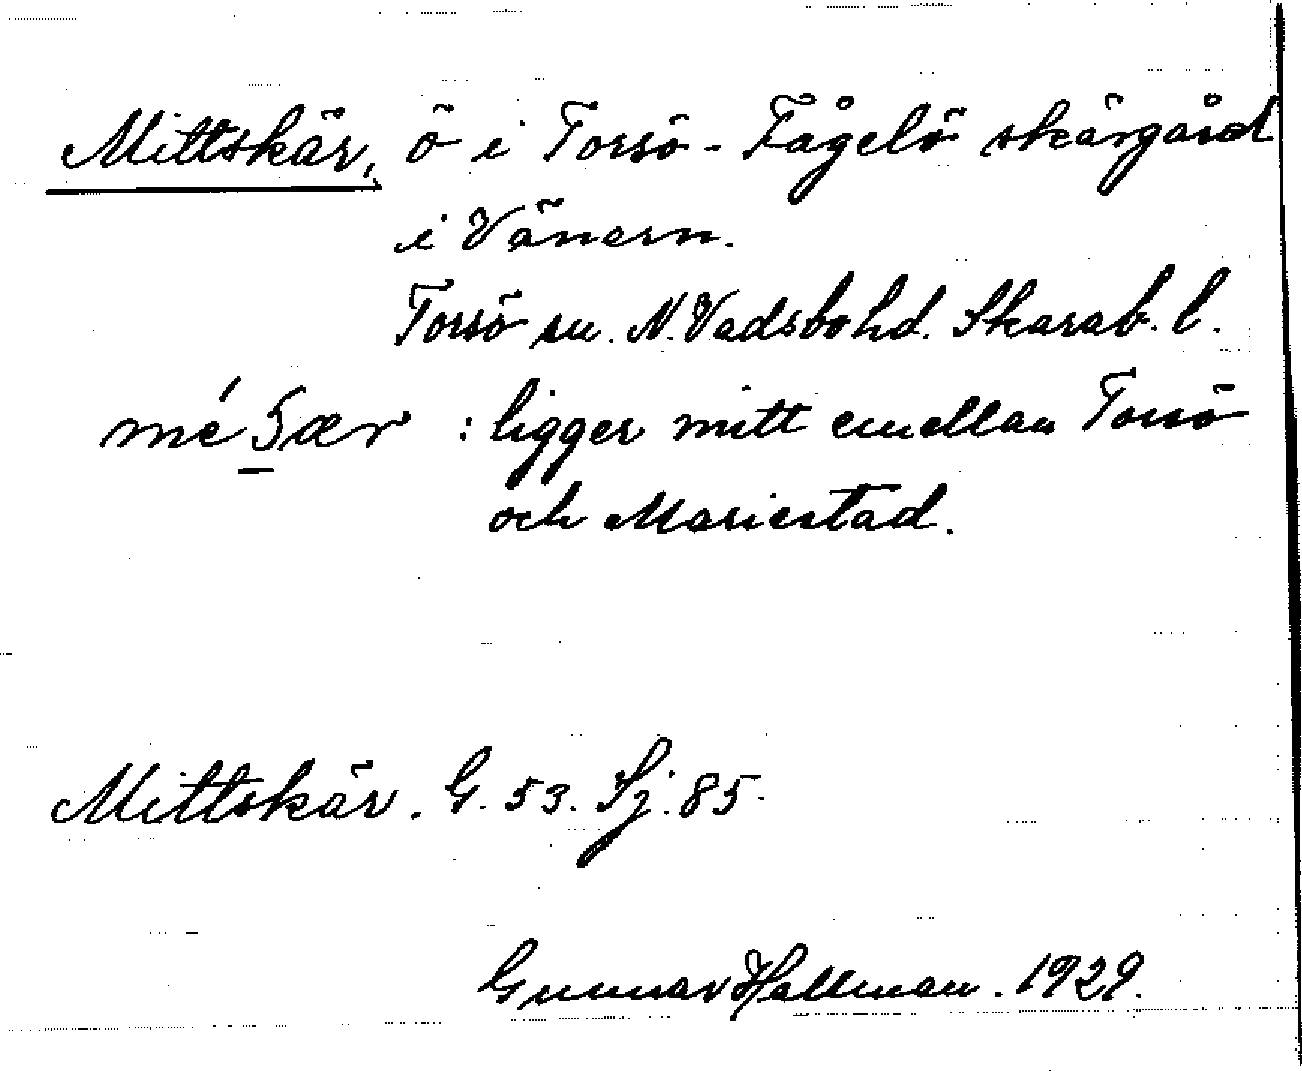 Mittskär, ö i Torsö - Fågelö skärgård
i Vänern.
Torsö sn. N. Vadsbo hd. Skarab. l.
: ligger mitt emellan Torsö
och Mariestad.
Mittskär. G. 53. Sj. 85.
Gunnar Hallman. 1929.